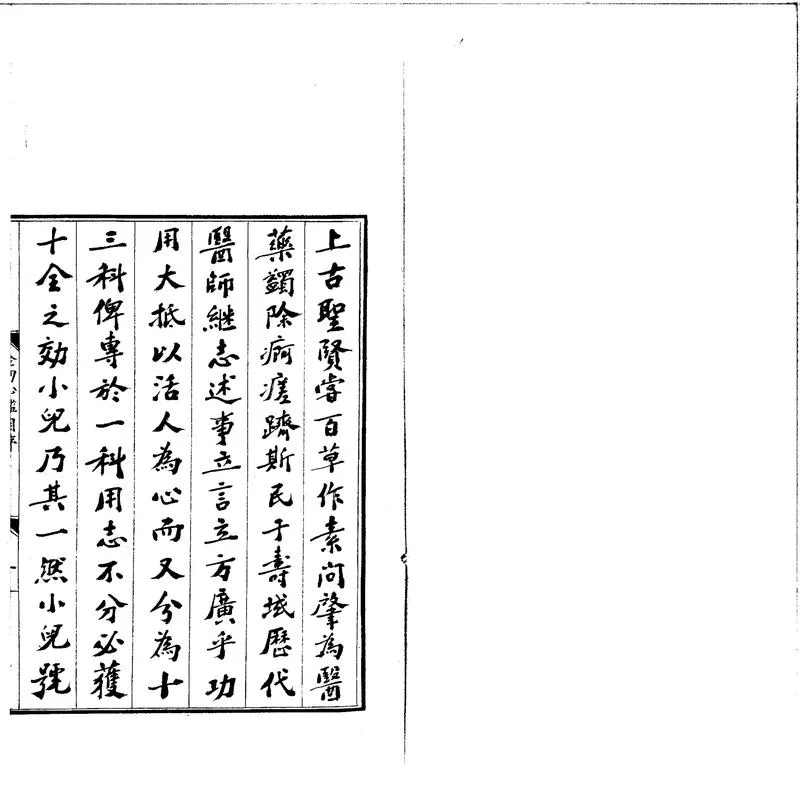 上古聖賢嘗百草作素問肇為醫
藥蠲除痾瘥躋斯民于壽域歷代
醫師繼志述事立言立方廣乎功
用大抵以活人為心而又分為十
三科俾專於一科用志不分必獲
十全之効小兒乃其一然小兒號